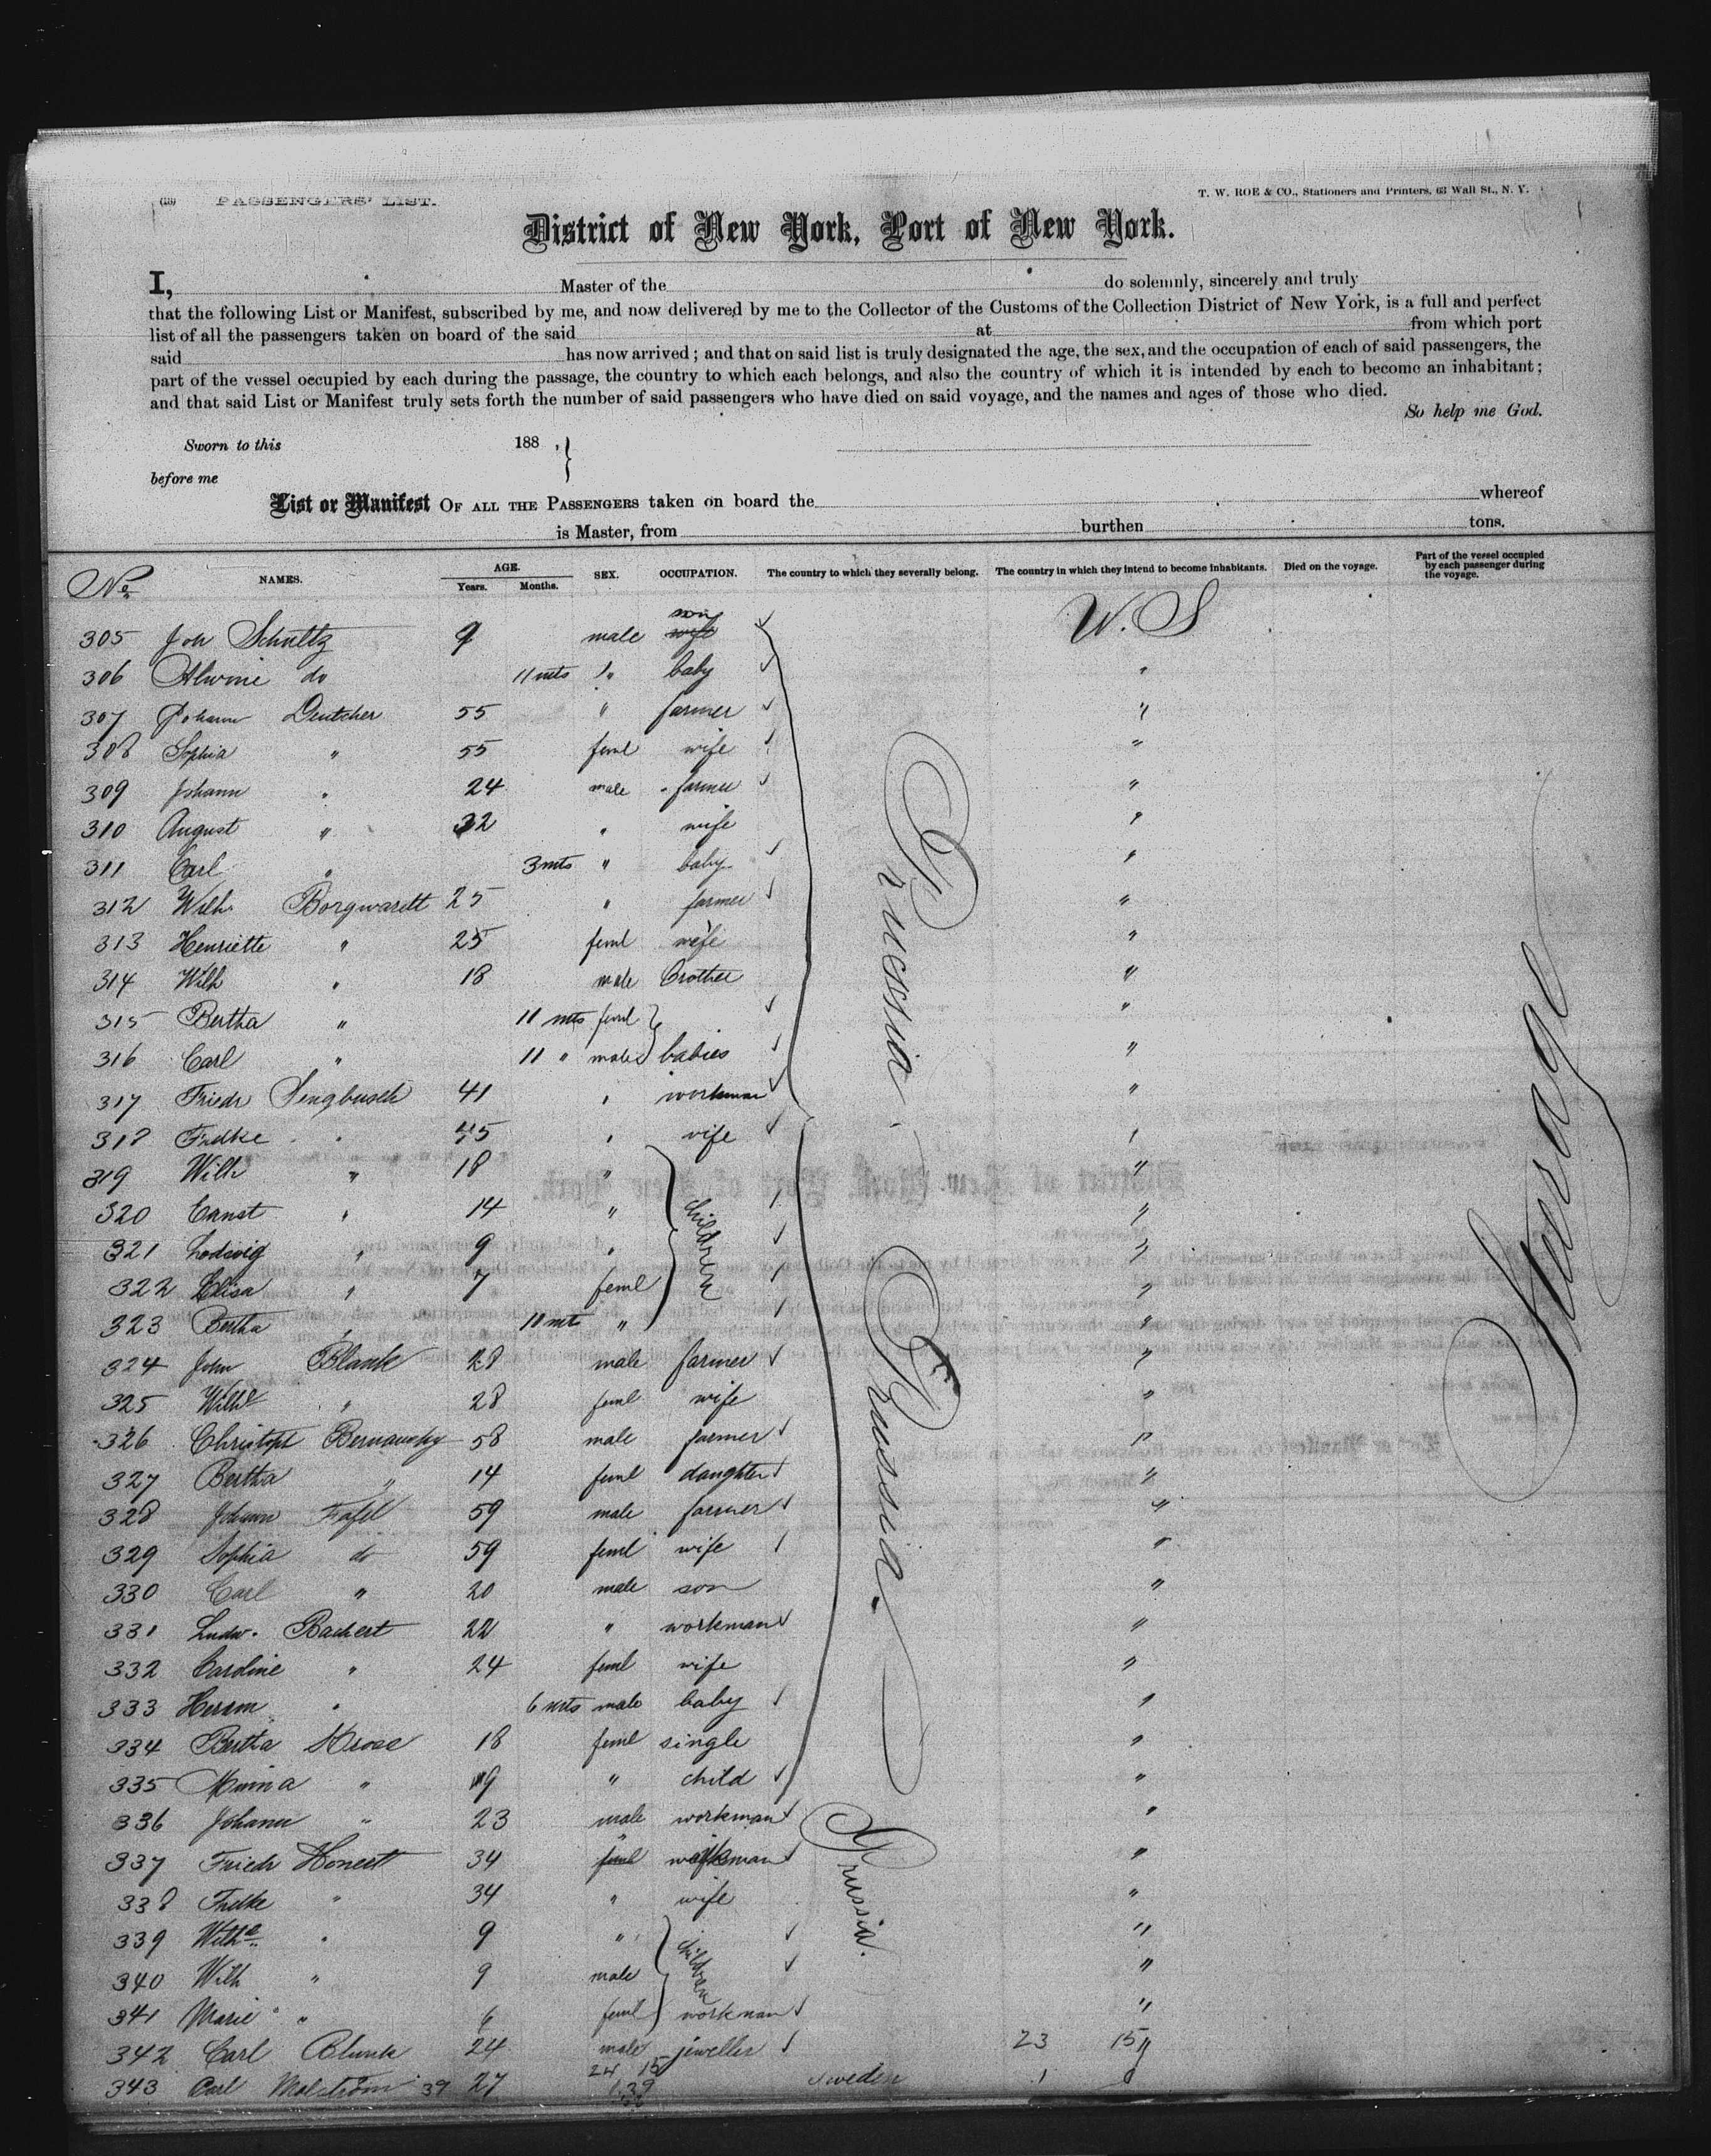 (13) PASSENGERS' LIST.
T. W. ROE & CO., Stationers and Printers, 63 Wall St., N. Y.
District of New York, Port of New York.
I, Master of the do solemnly, sincerely and truly
that the following List or Manifest, subscribed by me, and now delivered by me to the Collector of the Customs of the Collection District of New York, is a full and perfect
list of all the passengers taken on board of the said at from which port
said has now arrived; and that on said list is truly designated the age, the sex, and the occupation of each of said passengers, the
part of the vessel occupied by each during the passage, the country to which each belongs, and also the country of which it is intended by each to become an inhabitant;
and that said List or Manifest truly sets forth the number of said passengers who have died on said voyage, and the names and ages of those who died.
So help me God.
Sworn to this 188 ,
before me
List or Manifest OF ALL THE PASSENGERS taken on board the whereof
is Master, from burthen tons.
No. NAMES. AGE. Years. Months. SEX. OCCUPATION. The country to which they severally belong. The country in which they intend to become inhabitants. Died on the voyage. Part of the vessel occupied by each passenger during the voyage.
305 Joh Schultz 9 male wife son U. S
306 Alwine do 11 mts " baby "
307 Johann Deutcher 55 " farmer "
308 Sophia " 55 feml wife "
309 Johann " 24 male farmer "
310 August " 32 " wife "
311 Carl " 3 mts " baby "
312 Wilh. Borgwardt 25 " farmer "
313 Henriette " 25 feml wife "
314 Wilh " 18 male Brother "
315 Bertha " 11 mts feml "
316 Carl " 11 " male babies "
317 Friedr Sengbusch 41 " workman "
318 Fredke " 45 " wife "
319 Wilh " 18 " "
320 Ernst " 14 " children "
321 Lodwig " 9 " "
322 Elisa " 7 feml "
323 Bertha " 10 mts " "
324 John Blank 28 male farmer "
325 Wilh " 28 feml wife "
326 Christoph 58 male farmer "
327 Bertha " 14 feml daughter "
328 Johann Fafel 59 male farmer "
329 Sophia do 59 feml wife "
330 Carl " 20 male son "
331 Ludw. Bachert 22 " workman "
332 Caroline " 24 feml wife "
333 Herm " 6 mts male baby "
334 Bertha 18 feml single "
335 Minna " 9 " child "
336 Johann " 23 male workman "
337 Friedr 34 feml " workman "
338 Fredke " 34 " wife "
339 Wilhe " 9 " "
340 Wilh " 9 male children "
341 Marie " 6 feml workman "
342 Carl 24 male jeweller 23 15 "
343 Carl Malström 39 27 24 15 Sweden 1 "
1.39
Prussia.
Prussia.
Prussia.
Steerage